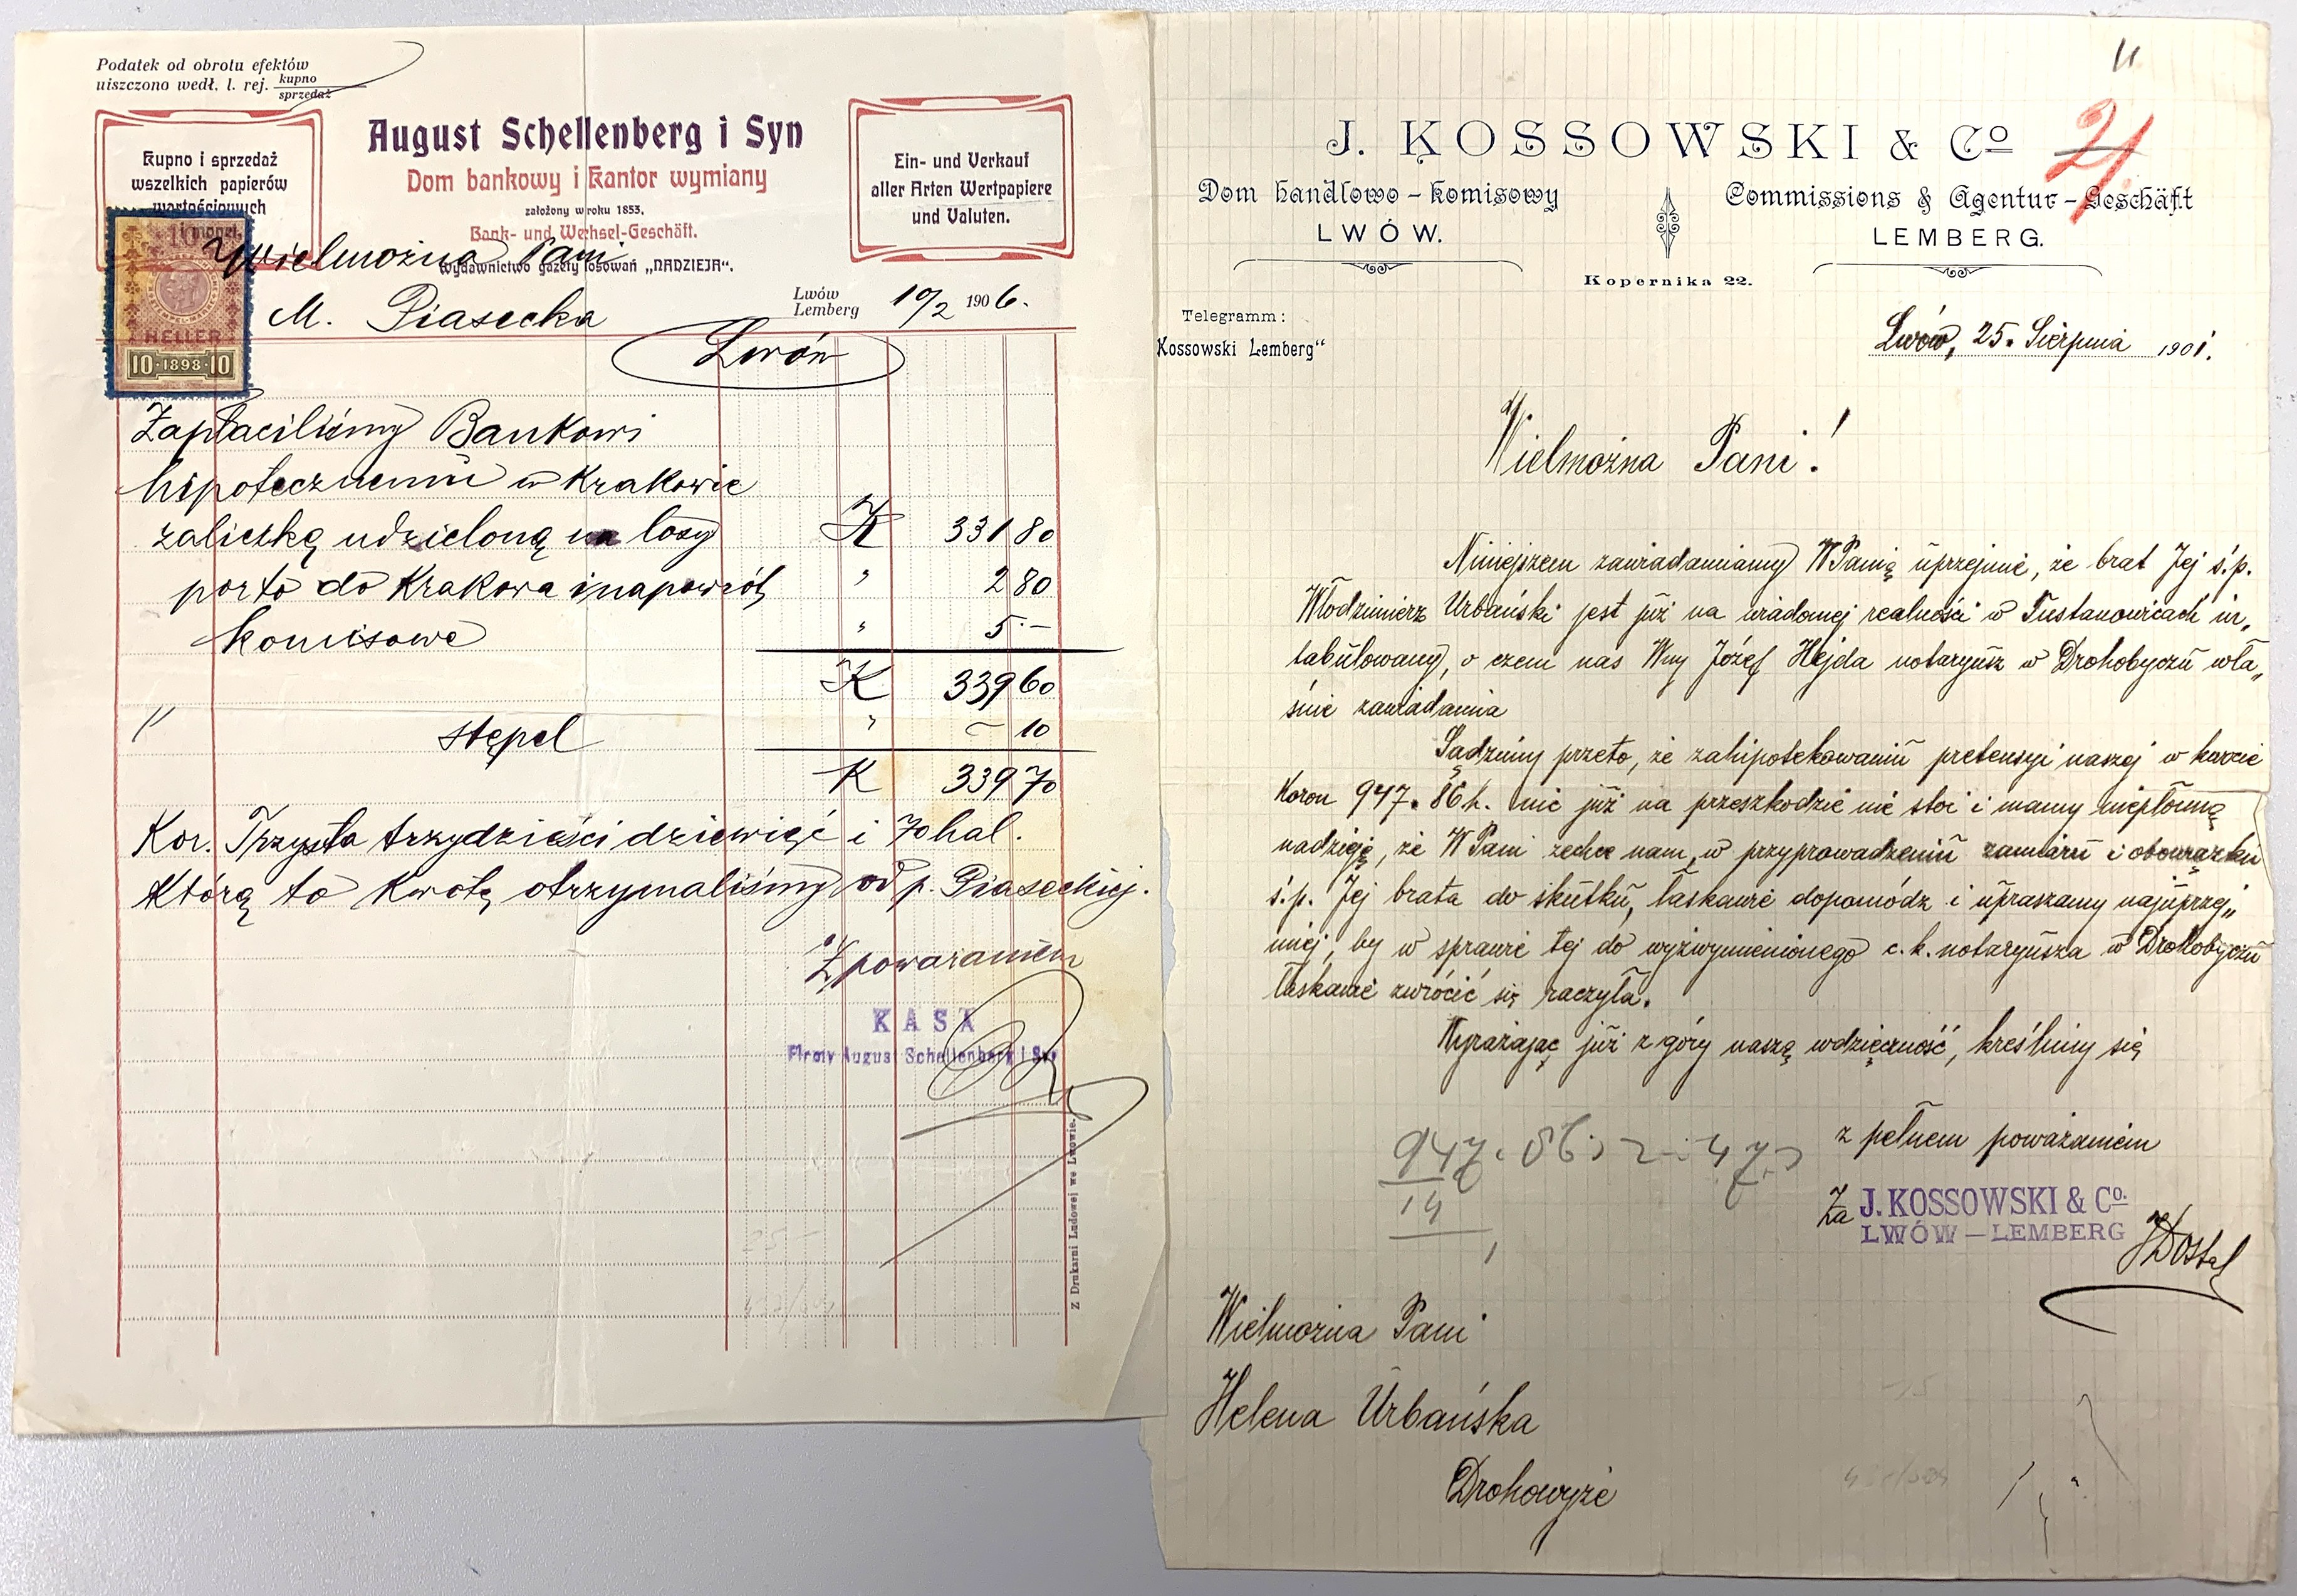 Podatek od obrotu efektów
uiszczono wedł. l. rej. kupno
sprzedaż
Kupno i sprzedaż
wszelkich papierów
wartościowych
i monet.
August Schellenberg i Syn
Dom bankowy i Kantor wymiany
założony w roku 1853.
Bank- und Wechsel-Geschäft.
Wydawnictwo gazety losowań „NADZIEJA“.
Ein- und Verkauf
aller Arten Wertpapiere
und Valuten.
10
HELLER
10 · 1898 · 10
Wielmożna Pani
M. Piasecka
Lwów
Lemberg 10/2 1906.
Lwów
Zapłaciliśmy Bankowi
hipotecznemu w Krakowie
zaliczkę udzieloną na losy K 331 80
porto do Krakowa i napowrót " 2 80
komisowe " 5.—
K 339 60
stępel " — 10
K 339 70
Kor. Trzysta trzydzieści dziewięć i 70 hal.
którą to kwotę otrzymaliśmy od p. Piaseckiej.
Z poważaniem
KASA
Firmy August Schellenberg i Syn
Z Drukarni Ludowej we Lwowie.
11
21
J. KOSSOWSKI & Co
Dom handlowo-komisowy
LWÓW.
Commissions & Agentur-Geschäft
LEMBERG.
Kopernika 22.
Telegramm:
Kossowski Lemberg“
Lwów, 25. Sierpnia 1901.
Wielmożna Pani!
Niniejszem zawiadamiamy WPanią uprzejmie, że brat Jej ś.p.
Włodzimierz Urbański jest już na wiadomej realności w Tustanowicach in„
tabulowany, o czem nas Wny Józef Hejda notaryusz w Drohobyczu wła„
śnie zawiadamia
Sądzimy przeto, że zahipotekowaniu pretensyi naszej w kwocie
Koron 947.86 h. nic już na przeszkodzie nie stoi i mamy niepłonną
nadzieję, że WPani zechce nam, w przyprowadzeniu zamiaru i obowiązku
ś.p. Jej brata do skutku, łaskawie dopomódz i upraszamy najuprzej„
miej, by w sprawie tej do wyżwymienionego c.k. notaryusza w Drohobyczu
łaskawie zwrócić się raczyła.
Wyrażając już z góry naszą wdzięczność, kreślimy się
z pełnem poważaniem
947.86 : 2 = 47
14
Za J. KOSSOWSKI & Co.
LWÓW – LEMBERG
JDostal
Wielmożna Pani
Helena Urbańska
Drohowyże